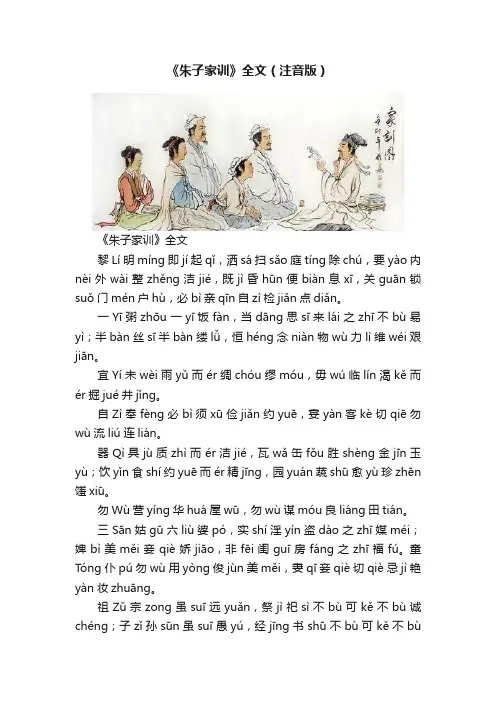 《朱子家训》全文（注音版）
家训图
《朱子家训》全文
黎Lí明míng即jí起qǐ，洒sǎ扫sǎo庭tíng除chú，要yào内
nèi外wài整zhěng洁jié，既jì昏hūn便biàn息xī，关guān锁
suǒ门mén户hù，必bì亲qīn自zì检jiǎn点diǎn。
一Yī粥zhōu一yī饭fàn，当dāng思sī来lái之zhī不bù易
yì；半bàn丝sī半bàn缕lǚ，恒héng念niàn物wù力lì维wéi艰
jiān。
宜Yí未wèi雨yǔ而ér绸chóu缪móu，毋wú临lín渴kě而
ér掘jué井jǐng。
自Zì奉fèng必bì须xū俭jiǎn约yuē，宴yàn客kè切qiē勿
wù流liú连lián。
器Qì具jù质zhì而ér洁jié，瓦wǎ缶fǒu胜shèng金jīn玉
yù；饮yǐn食shí约yuē而ér精jīng，园yuán蔬shū愈yù珍zhēn
馐xiū。
勿Wù营yíng华huá屋wū，勿wù谋móu良liáng田tián。
三Sān姑gū六liù婆pó，实shí淫yín盗dào之zhī媒méi；
婢bì美měi妾qiè娇jiāo，非fēi闺guī房fáng之zhī福fú。童
Tóng仆pú勿wù用yòng俊jùn美měi，妻qī妾qiè切qiè忌jì艳
yàn妆zhuāng。
祖Zǔ宗zong虽suī远yuǎn，祭jì祀sì不bù可kě不bù诚
chéng；子zǐ孙sūn虽suī愚yú，经jīng书shū不bù可kě不bù